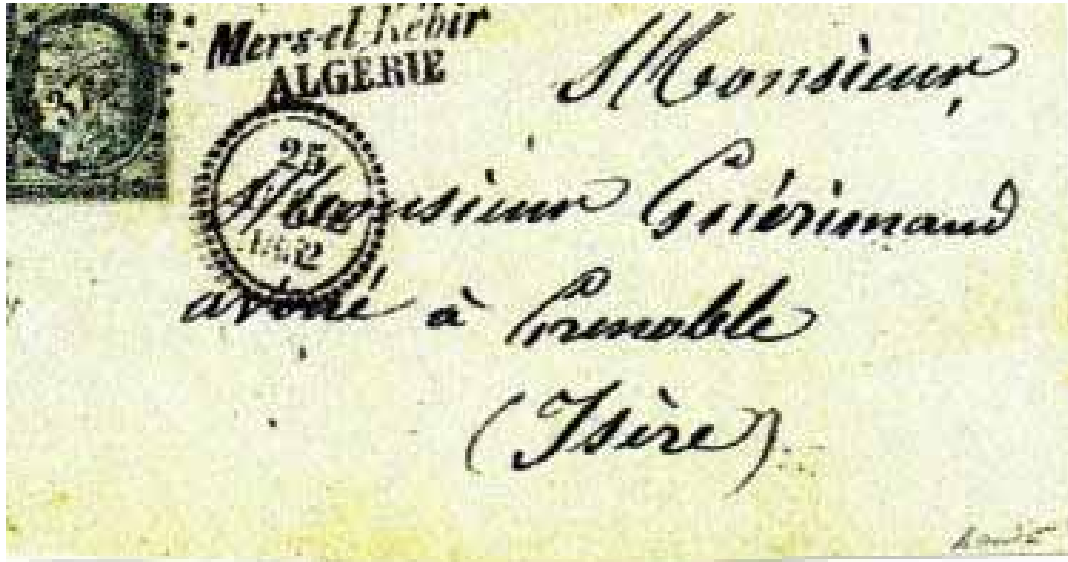 Mers-el-Kébir
ALGÉRIE
25
Monsieur,
Monsieur Guérimand
avoué à Grenoble
(Isère)